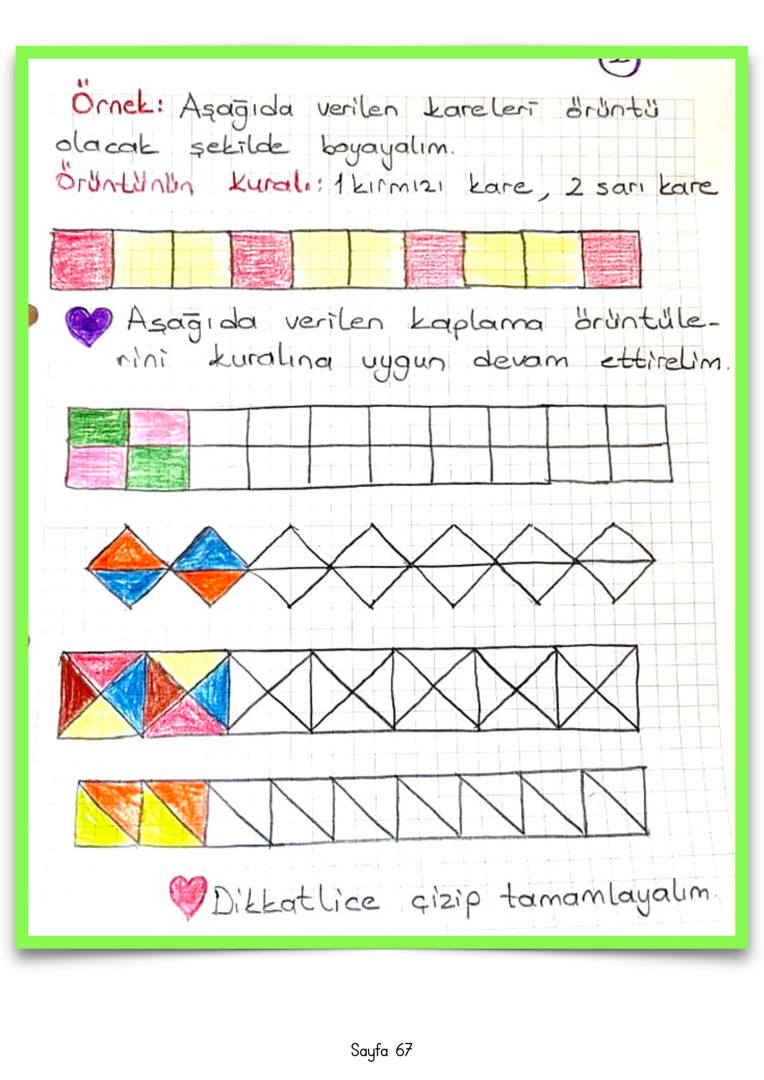 Örnek: Aşağıda verilen kareleri örüntü
olacak şekilde boyayalım.
Örüntünün Kuralı: 1 kırmızı kare, 2 sarı kare
Aşağıda verilen kaplama örüntüle-
rini kuralına uygun devam ettirelim.
Dikkatlice çizip tamamlayalım.
Sayfa 67